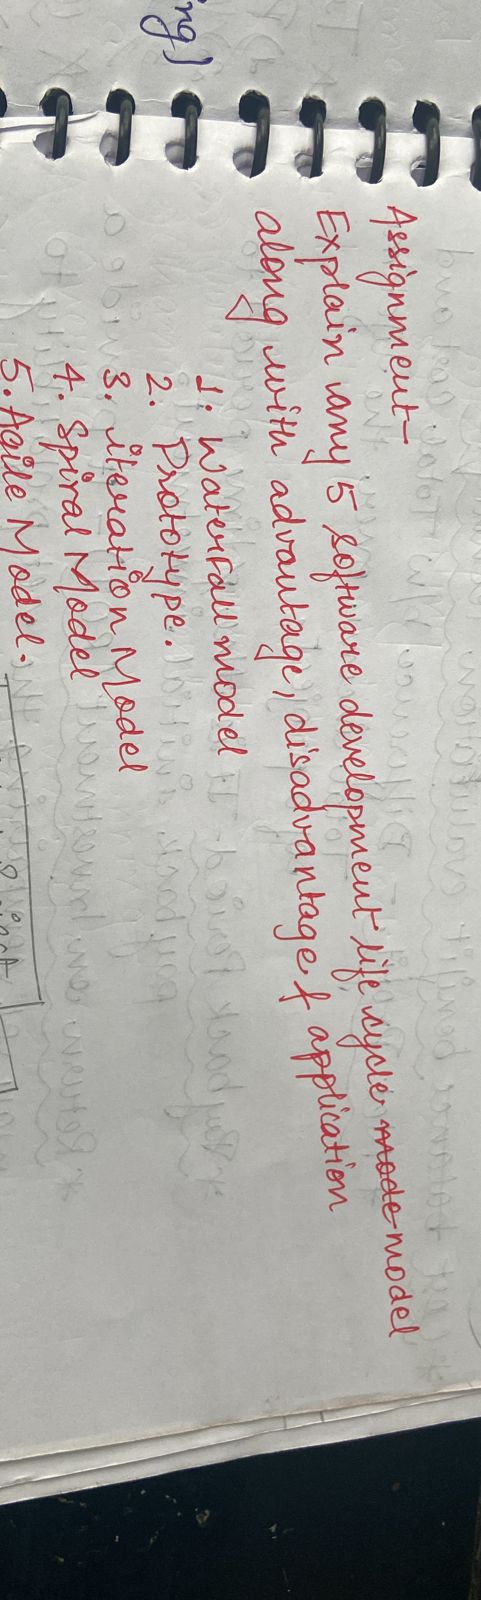 Assignment-
Explain any 5 software development life cycle mode model
along with advantage, disadvantage & application
1. Waterfall model
2. Prototype.
3. iteration Model
4. Spiral Model
5. Agile Model.
ng)